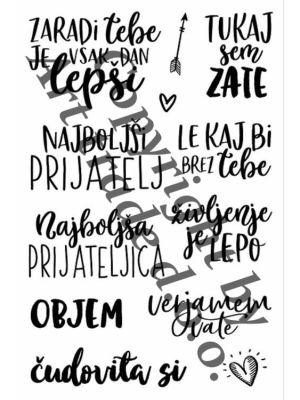 ZARADi tebe
JE VSAK DAN
lepši
TUKAJ
sem
ZATE
NAJBOLJŠi
PRIJATELJ
LE KAJ Bi
BREZ tebe
Najboljša
PRIJATELJICA
življenje
je LEPO
OBJEM
verjamem
vate
čudovita si
Copyright by
Art
d.o.o.